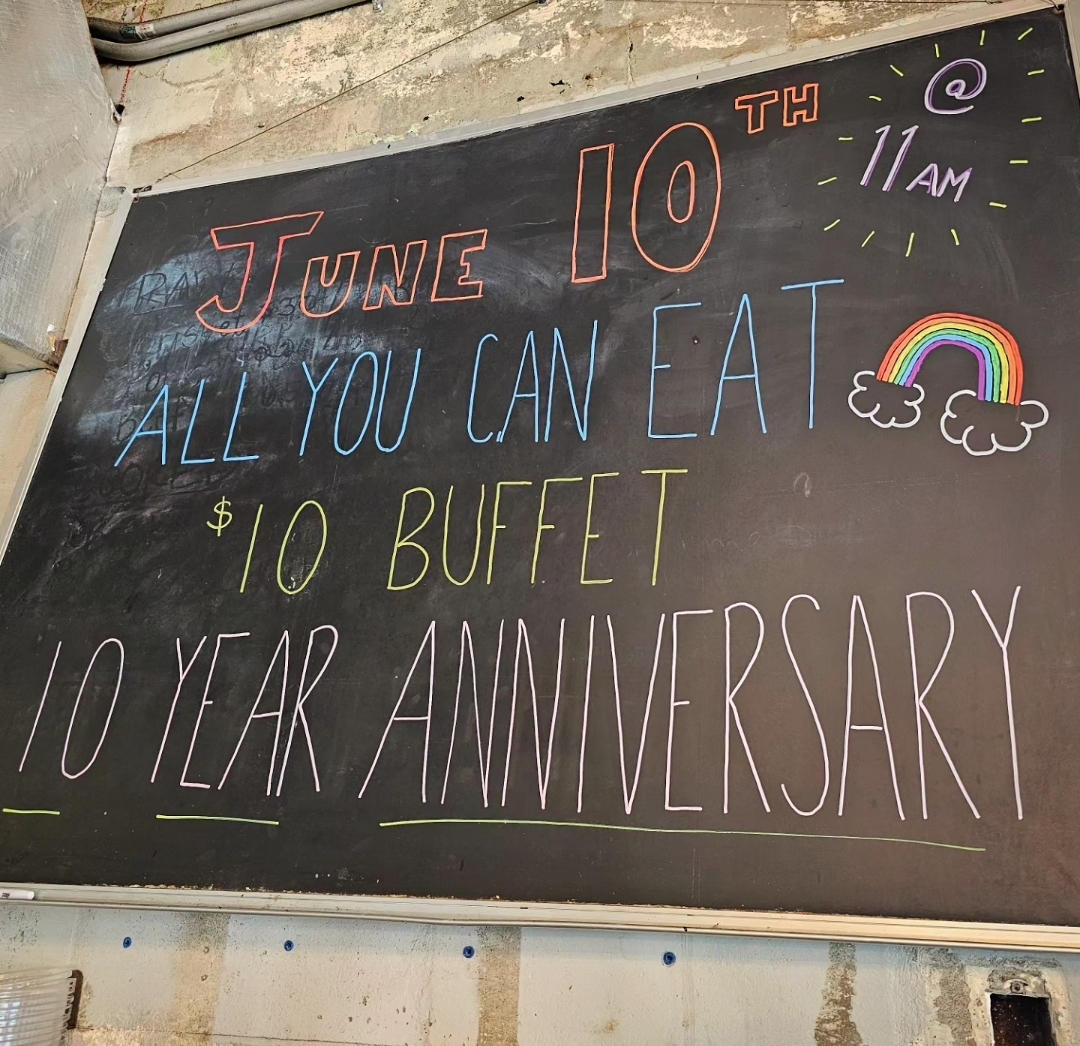 JUNE 10TH @
11AM
ALL YOU CAN EAT
$10 BUFFET
10 YEAR ANNIVERSARY